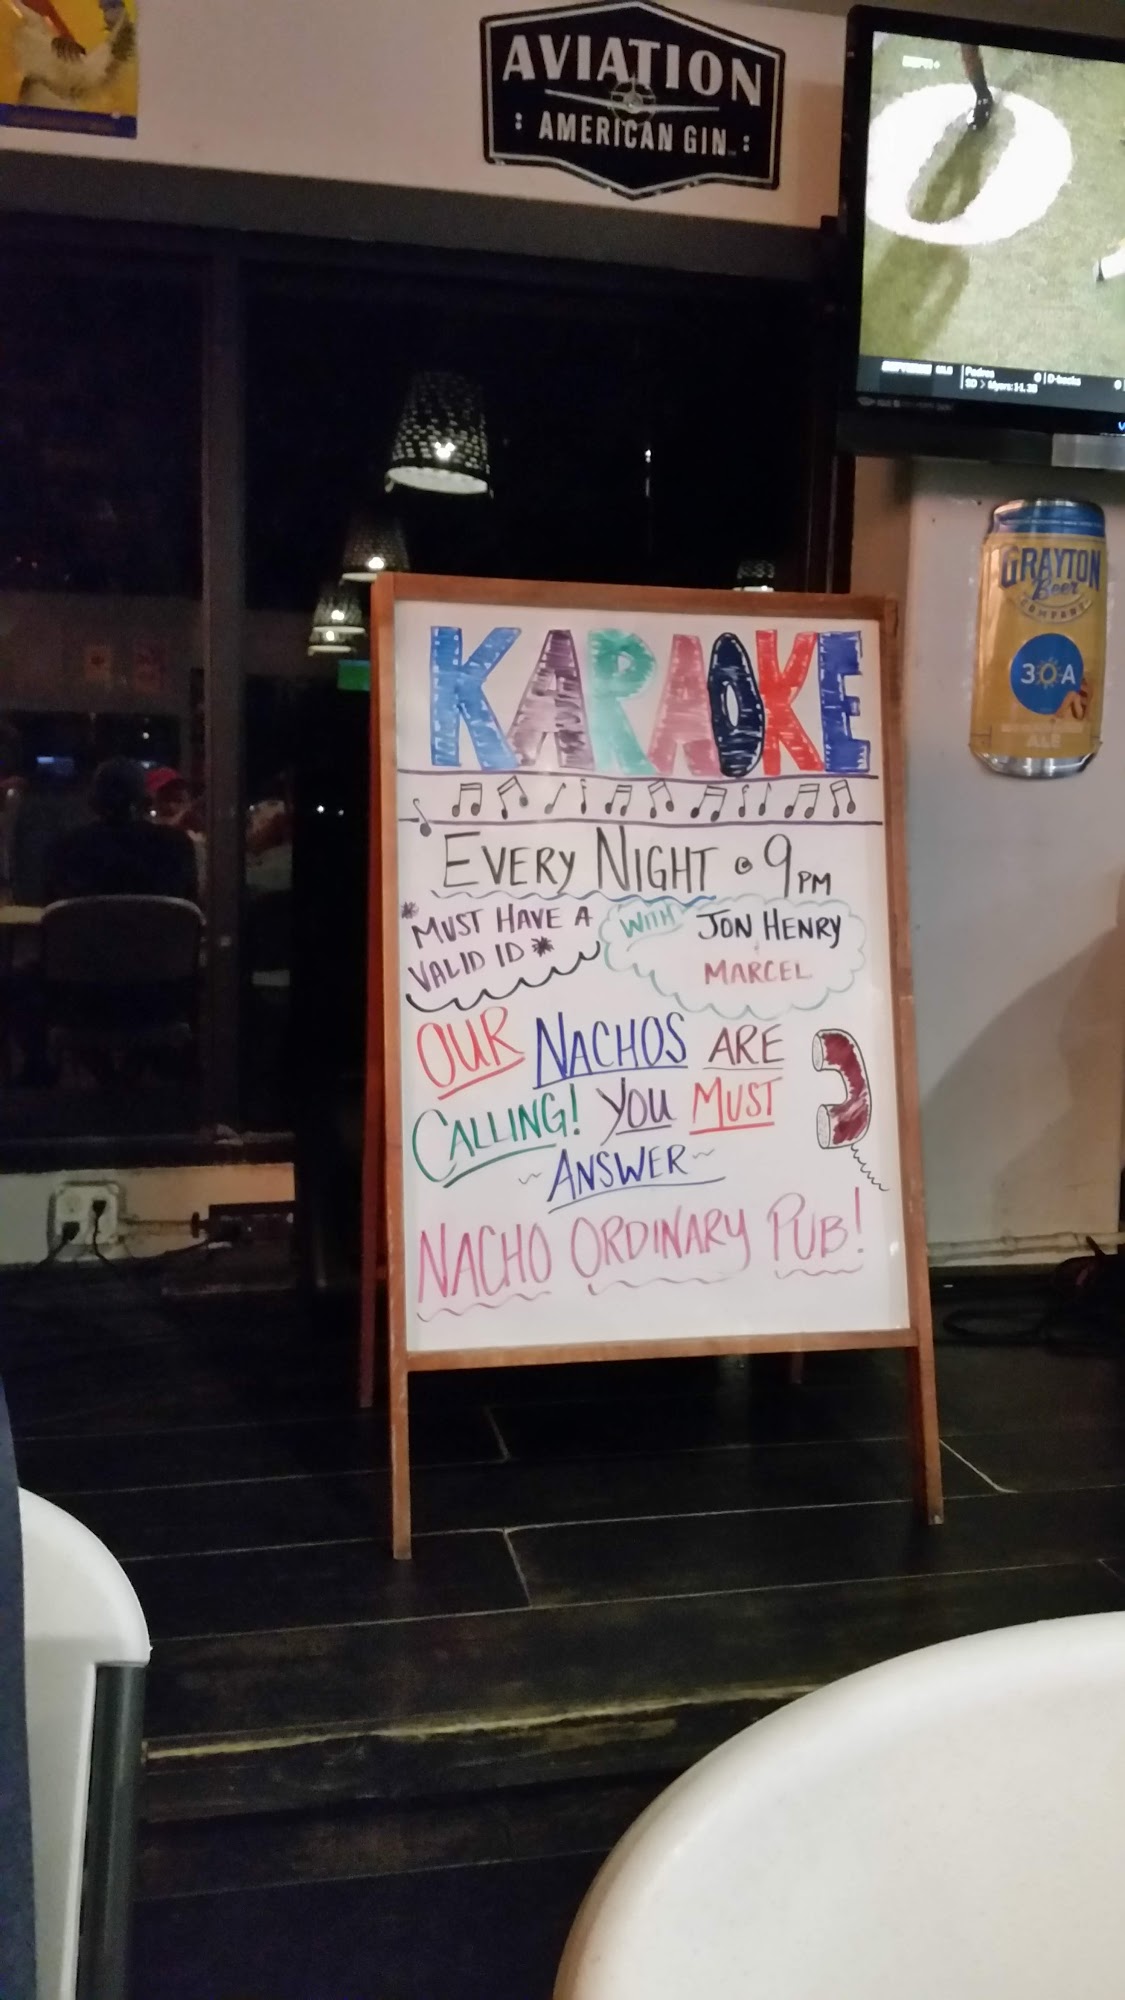 AVIATION
: AMERICAN GIN :
Padres 0 | D-backs 0
SD > Myers: 1-1, 2B
GRAYTON
Beer
COMPANY
30A
ALE
KARAOKE
EVERY NIGHT @ 9PM
*MUST HAVE A
VALID ID*
WITH JON HENRY
MARCEL
OUR NACHOS ARE
CALLING! YOU MUST
~ANSWER~
NACHO ORDINARY PUB!